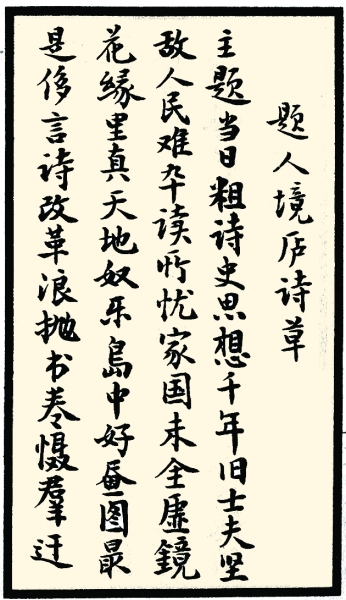 题人境庐诗草
主题当日粗诗史思想千年旧士夫坚
敌人民难卒读所忧家国未全虚鏡
花緣里真天地奴乐島中好画图最
是侈言诗改革浪抛书卷慑羣迂